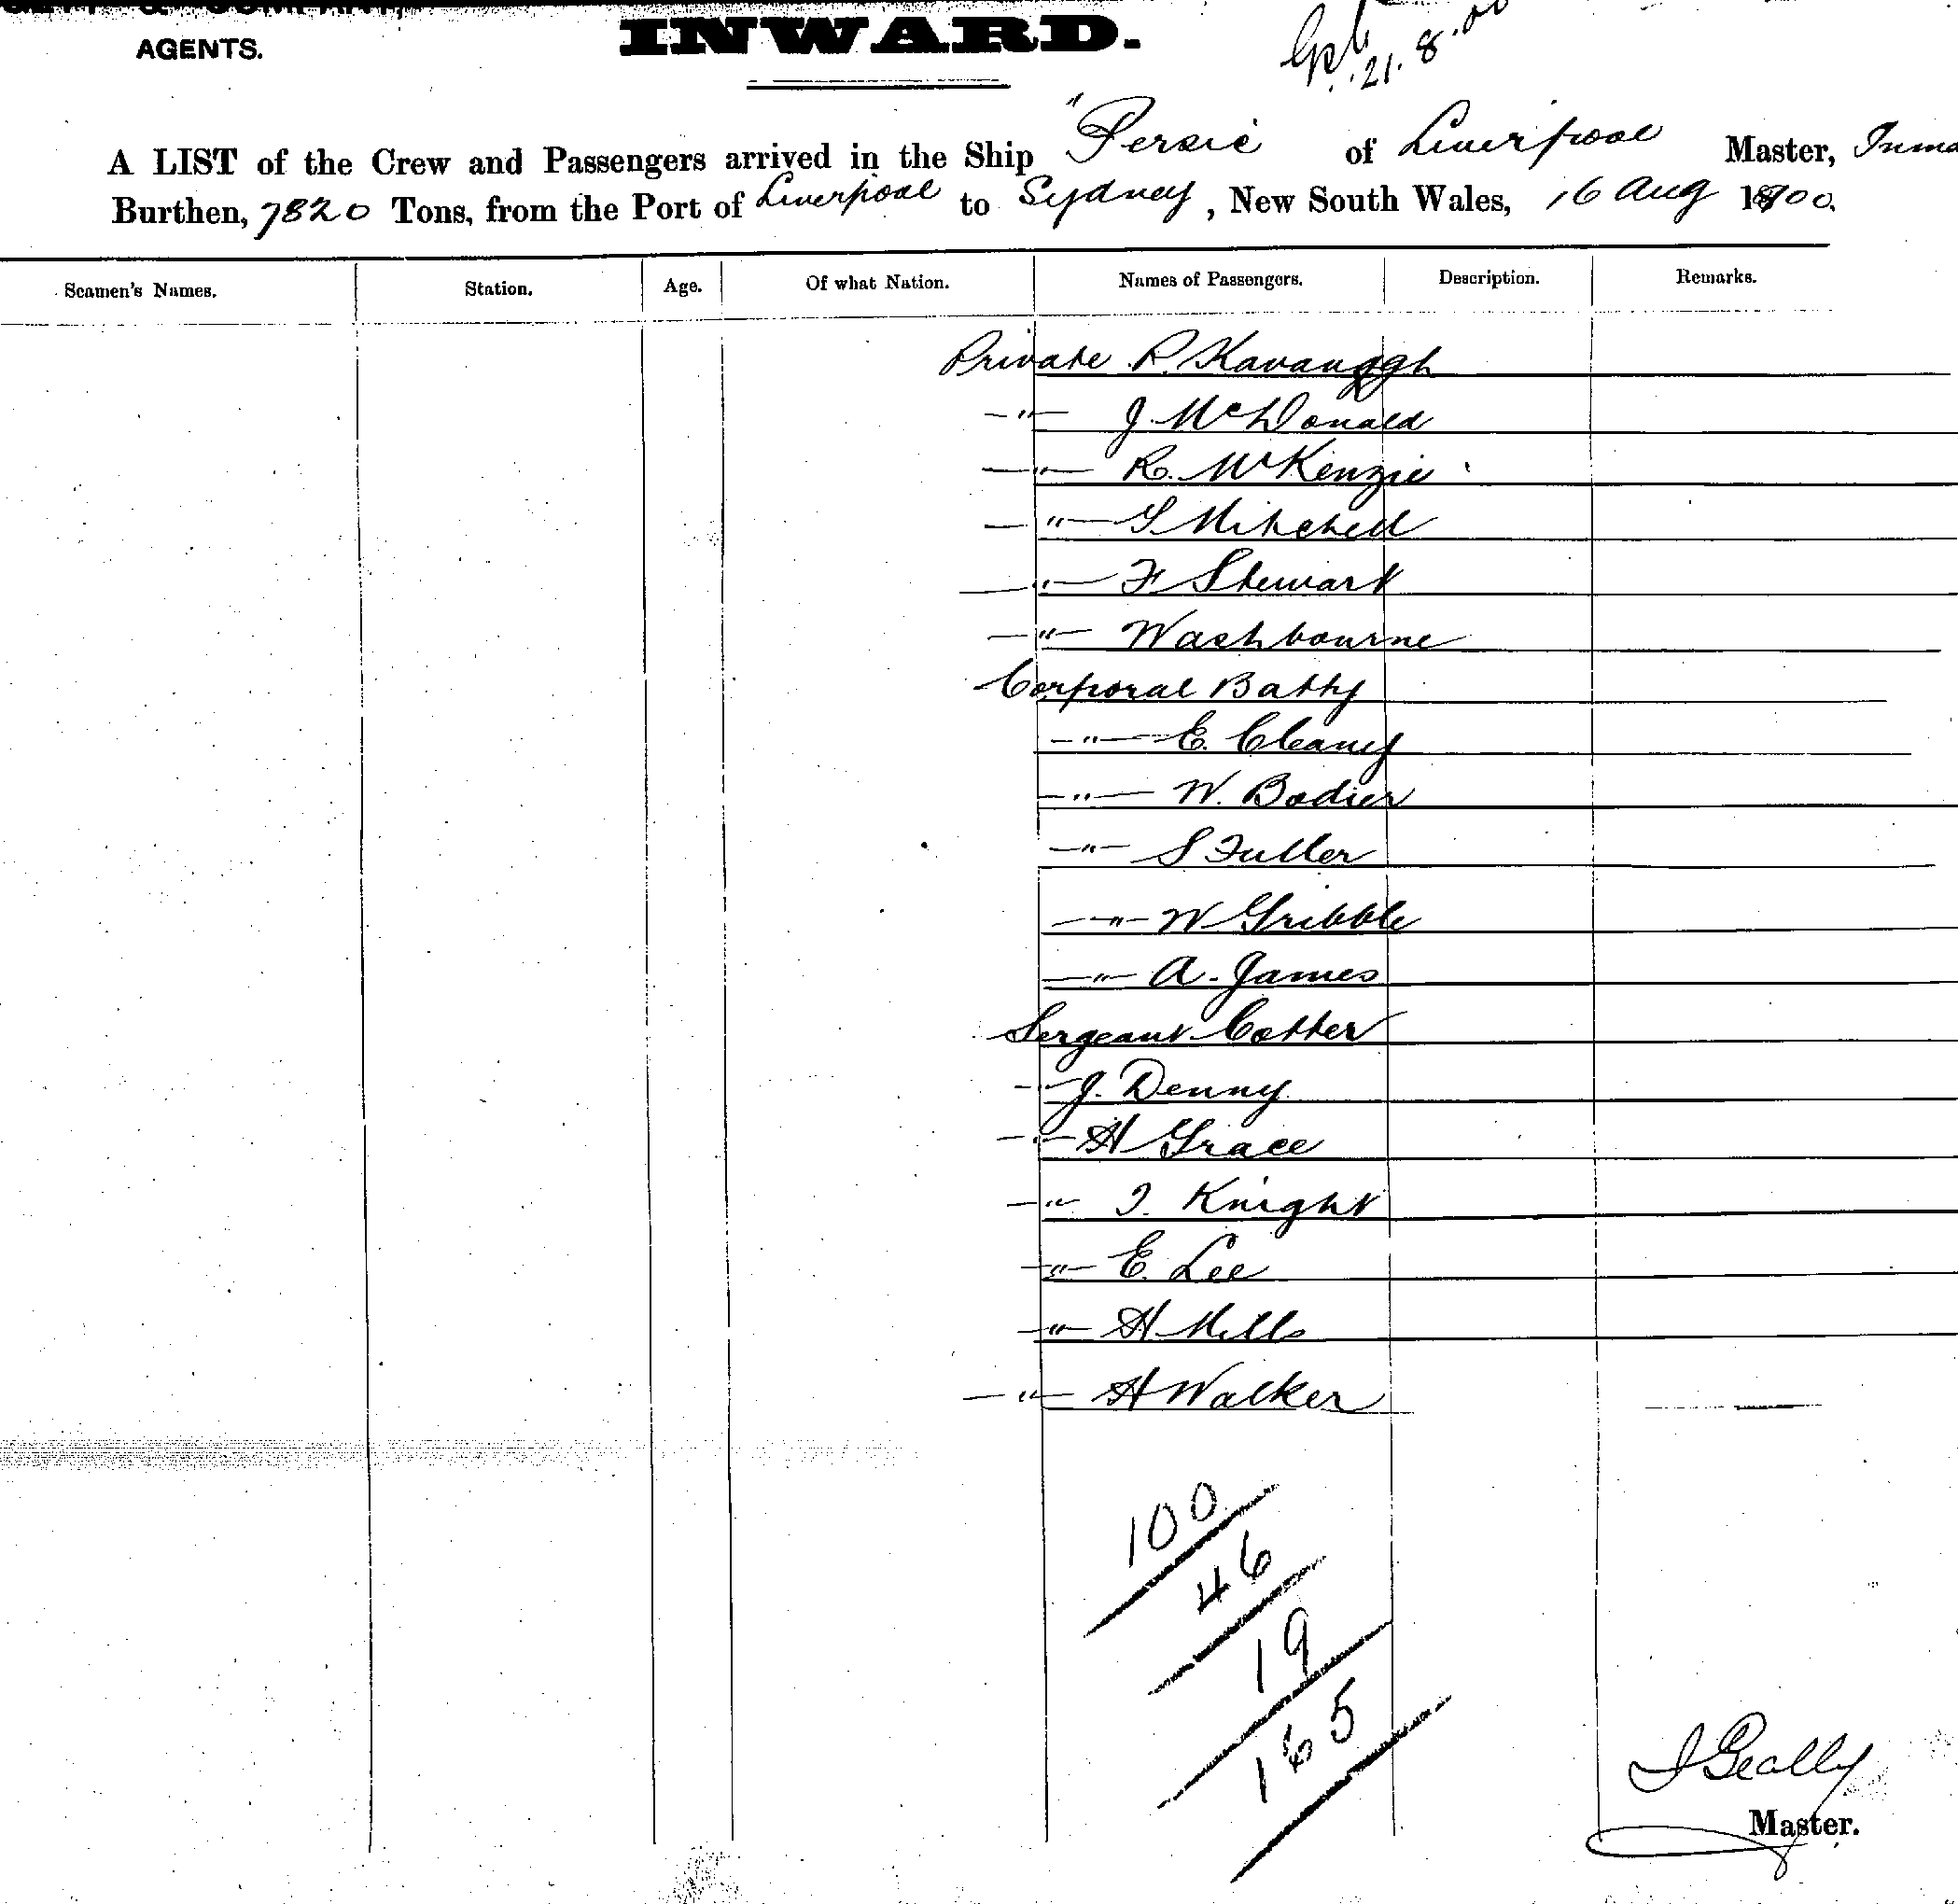 AGENTS.
INWARD.
21.8.00
A LIST of the Crew and Passengers arrived in the Ship "Persic of Liverpool Master,
Burthen, 7820 Tons, from the Port of Liverpool to Sydney, New South Wales, 16 Aug 1900.
Seamen's Names. Station. Age. Of what Nation. Names of Passengers. Description. Remarks.
Private P. Kavanagh
—"— J. McDonald
—"— R. McKenzie
—"— G Mitchell
—"— F Stewart
—"— Washbourne
Corporal Batty
—"— E. Cleary
—"— W. Bodier
—"— S Fuller
—"— W Gribble
—"— A. James
Sergeant Cotter
—"— J. Denny
—"— H Grace
—"— J. Knight
—"— E. Lee
—"— H Mills
—"— H Walker
100
46
19
165
Master.